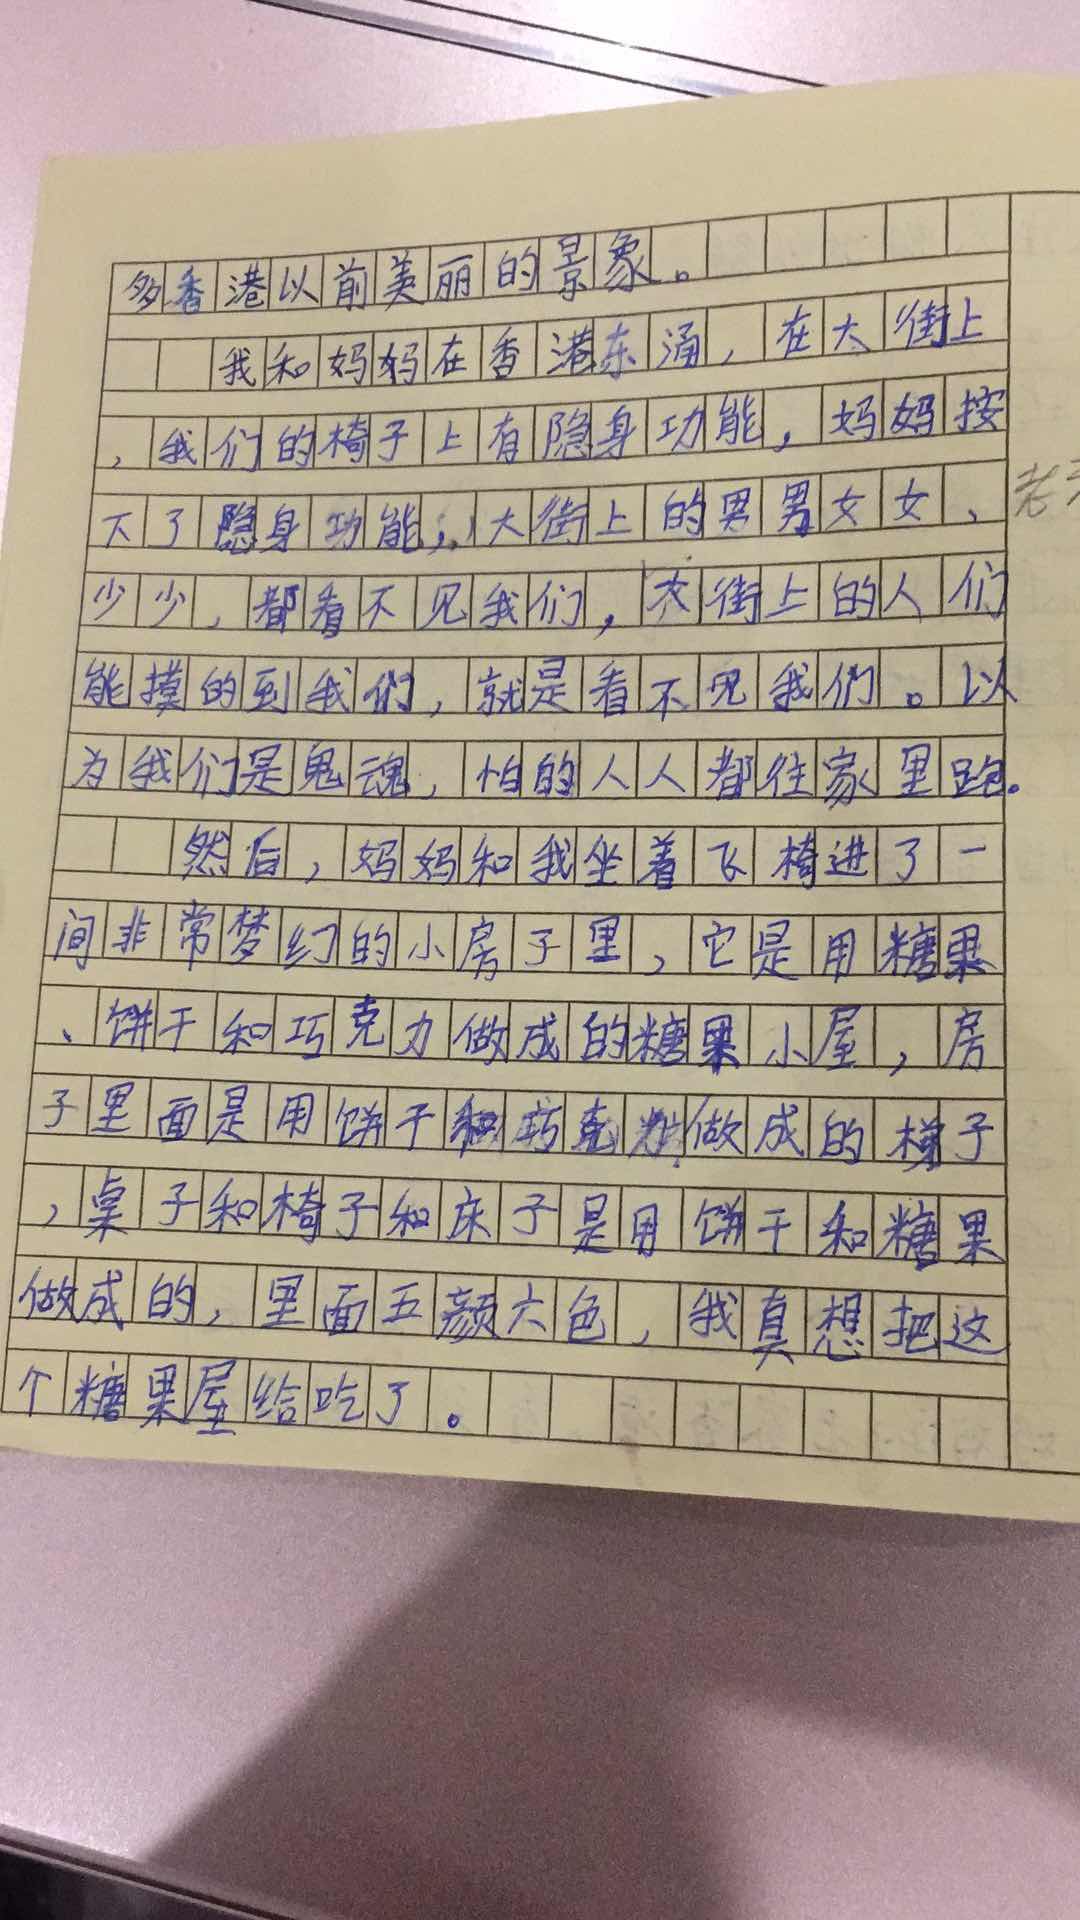 多香港以前美丽的景象。
我和妈妈在香港东涌，在大街上
，我们的椅子上有隐身功能，妈妈按
下了隐身功能，大街上的男男女女、老
少少，都看不见我们，大街上的人们
能摸的到我们，就是看不见我们。以
为我们是鬼魂，怕的人人都往家里跑。
然后，妈妈和我坐着飞椅进了一
间非常梦幻的小房子里，它是用糖果
、饼干和巧克力做成的糖果小屋，房
子里面是用饼干和巧克力做成的梯子
，桌子和椅子和床子是用饼干和糖果
做成的，里面五颜六色，我真想把这
个糖果屋给吃了。